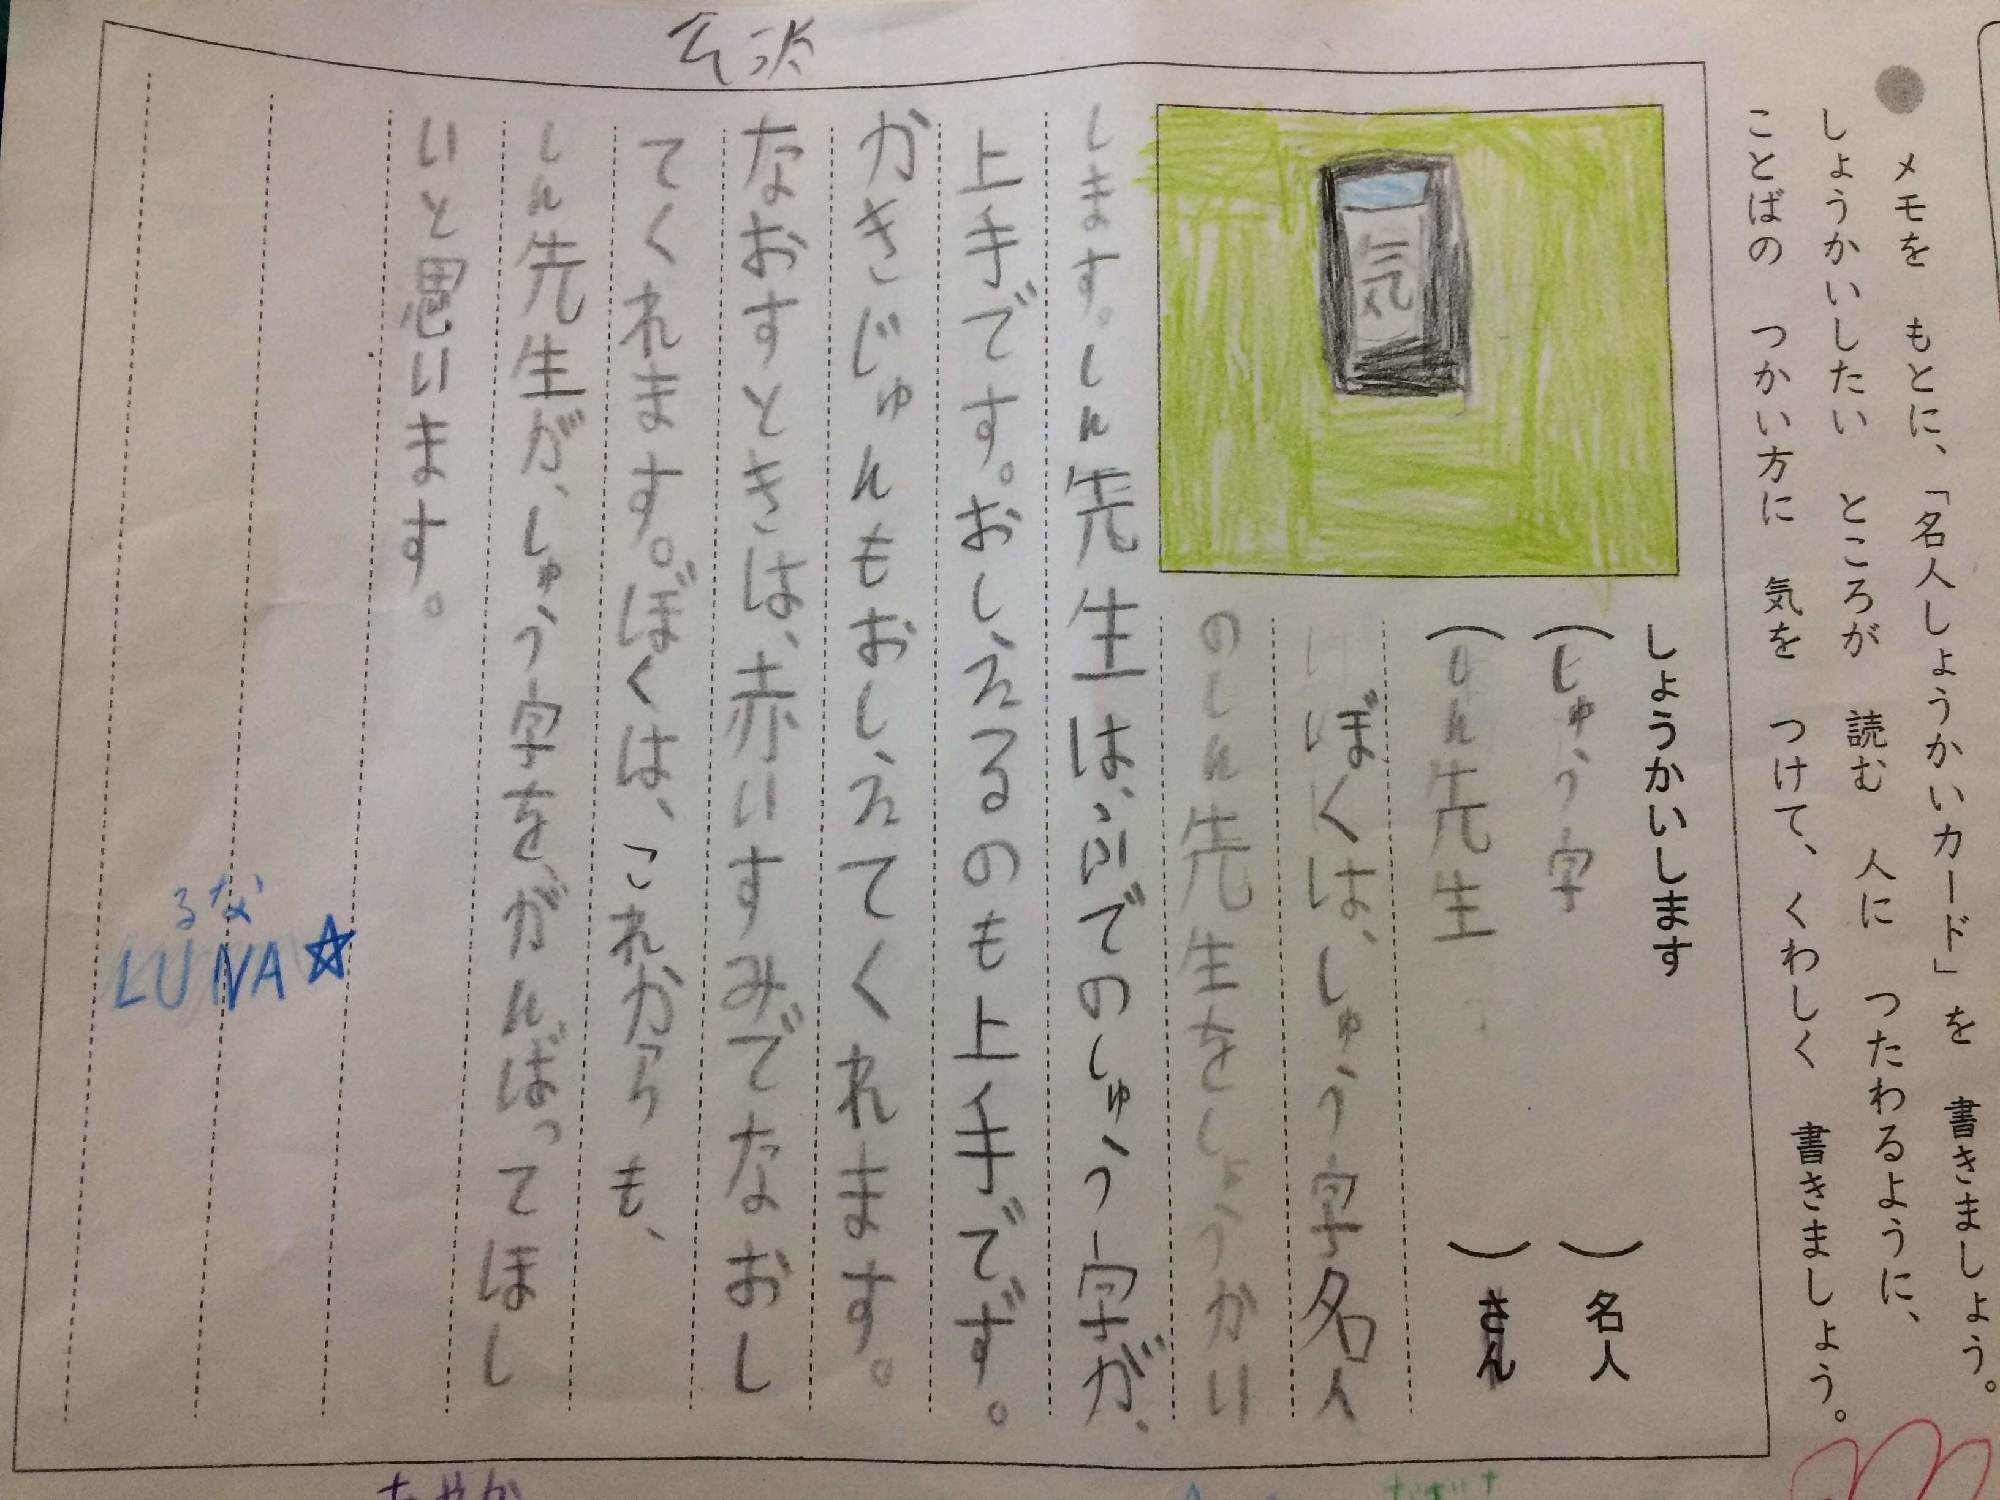 ● メモを もとに、「名人しょうかいカード」を 書きましょう。
しょうかいしたい ところが 読む 人に つたわるように、
ことばの つかい方に 気を つけて、くわしく 書きましょう。
しょうかいします
(しゅう字)名人
(しん先生)さん
気
ぼくは、しゅう字名人
のしん先生をしょうかい
します。しん先生は、ふでのしゅう字が、
上手です。おしえるのも上手です。
かきじゅんもおしえてくれます。
なおすときは、赤いすみでなおし
てくれます。ぼくは、これからも、
しん先生が、しゅう字を、がんばってほし
いと思います。
るな
LUNA☆